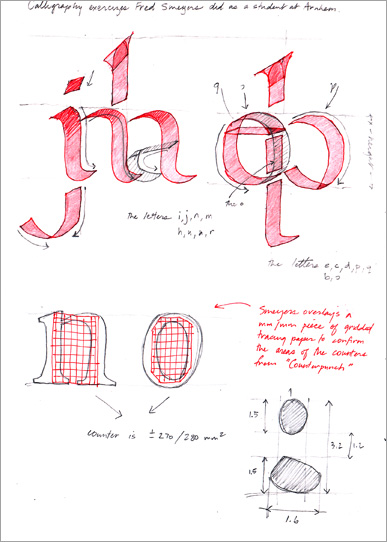 Calligraphy exercizes Fred Smeijers did as a student at Arnhem.
q
γ
the o
The letters i, j, n, m
h, u, a, r
The letters o, c, d, p, q
b, o
n
o
Smeijers overlays a
mm/mm piece of gridded
tracing paper to confirm
the areas of the counters
from "Counterpunch"
counter is ± 270/280 mm²
1.5
3.2
1.2
1.5
1.6